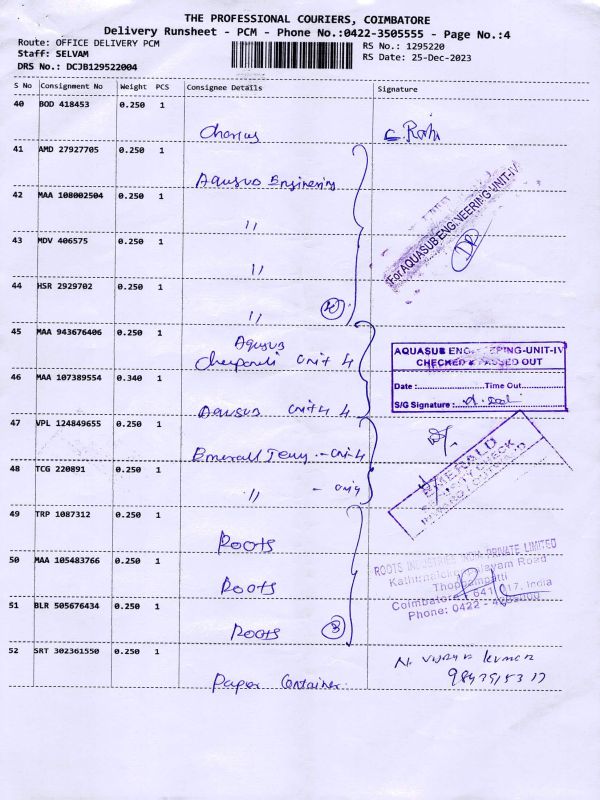 THE PROFESSIONAL COURIERS, COIMBATORE
Delivery Runsheet - PCM - Phone No.:0422-3505555 - Page No.:4
Route: OFFICE DELIVERY PCM
RS No.: 1295220
Staff: SELVAM
RS Date: 25-Dec-2023
DRS No.: DCJB129522004
S No Consignment No Weight PCS Consignee Details Signature
40 BOD 418453 0.250 1
41 AMD 27927705 0.250 1
Aquasub Engineering
42 MAA 108002504 0.250 1
For AQUASUB ENGINEERING-UNIT-IV
11
43 MDV 406575 0.250 1
11
44 HSR 2929702 0.250 1
11
45 MAA 943676406 0.250 1
Unit 4
AQUASUB ENGINEERING-UNIT-IV
CHECKED & PASSED OUT
Date : Time Out
S/G Signature :
46 MAA 107389554 0.340 1
Unit 4
47 VPL 124849655 0.250 1
Unit 4
EMERALD
48 TCG 220891 0.250 1
11
49 TRP 1087312 0.250 1
Roots
50 MAA 105483766 0.250 1
Roots
ROOTS INDUSTRIES PRIVATE LIMITED
Thoppampatti
Coimbatore - 641 017. India
Phone: 0422 -
51 BLR 505676434 0.250 1
Roots
3
52 SRT 302361550 0.250 1
Paper Container.
N. Vijaya kumar